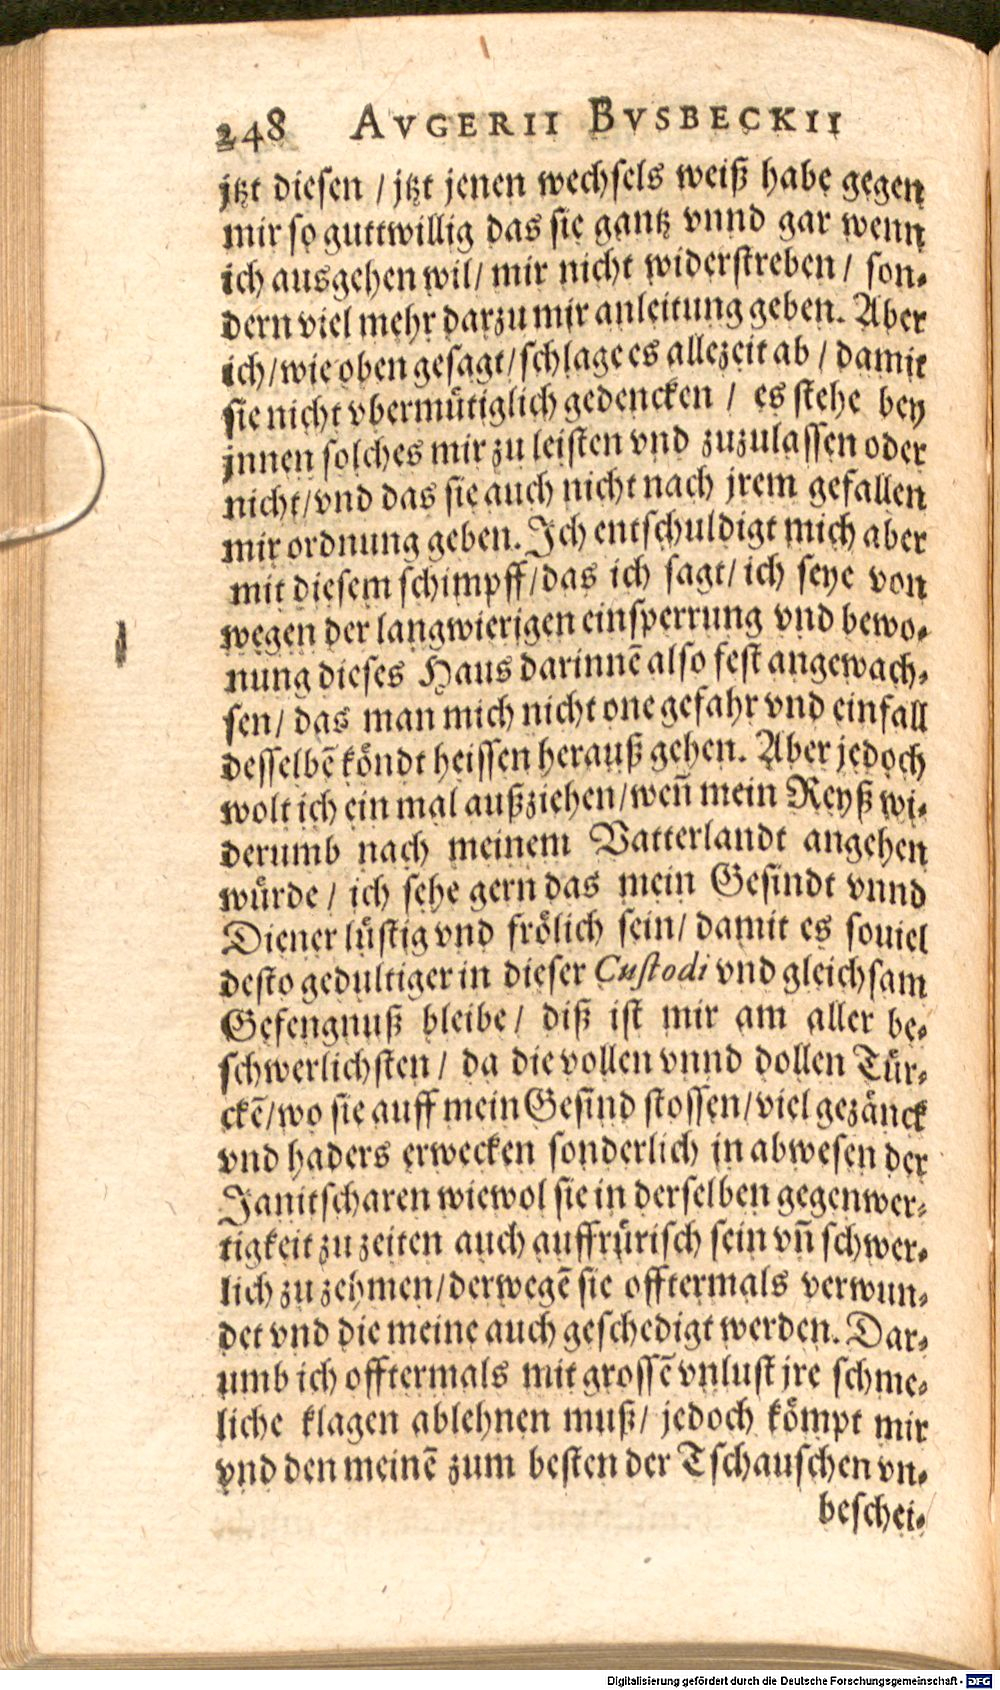 248 AVGERII BVSBECKII
jtzt diesen / jtzt jenen wechsels weiß habe gegen
mir so guttwillig das sie gantz vnnd gar wenn
ich ausgehen wil / mir nicht widerstreben / son-
dern viel mehr darzu mir anleitung geben. Aber
ich / wie oben gesagt / schlage es allezeit ab / damit
sie nicht vbermütiglich gedencken / es stehe bey
jnnen solches mir zu leisten vnd zuzulassen oder
nicht / vnd das sie auch nicht nach jrem gefallen
mir ordnung geben. Ich entschuldigt mich aber
mit diesem schimpff / das ich sagt / ich seye von
wegen der langwierigen einsperrung vnd bewo-
nung dieses Haus darinnē also fest angewach-
sen / das man mich nicht one gefahr vnd einfall
desselbē köndt heissen herauß gehen. Aber jedoch
wolt ich ein mal außziehen / weñ mein Reyß wi-
derumb nach meinem Vatterlandt angehen
würde / ich sehe gern das mein Gesindt vnnd
Diener lüstig vnd frölich sein / damit es souiel
desto gedultiger in dieser Custodi vnd gleichsam
Gefengnuß bleibe / diß ist mir am aller be-
schwerlichsten / da die vollen vnnd dollen Tür-
ckē / wo sie auff mein Gesind stossen / viel gezänck
vnd haders erwecken sonderlich in abwesen der
Janitscharen wiewol sie in derselben gegenwer-
tigkeit zu zeiten auch auffrürisch sein vñ schwer-
lich zu zehmen / derwegē sie offtermals verwun-
det vnd die meine auch geschedigt werden. Dar-
umb ich offtermals mit grossē vnlust jre schme-
liche klagen ablehnen muß / jedoch kömpt mir
vnd den meinē zum besten der Tschauschen vn-
beschei-
Digitalisierung gefördert durch die Deutsche Forschungsgemeinschaft - DFG